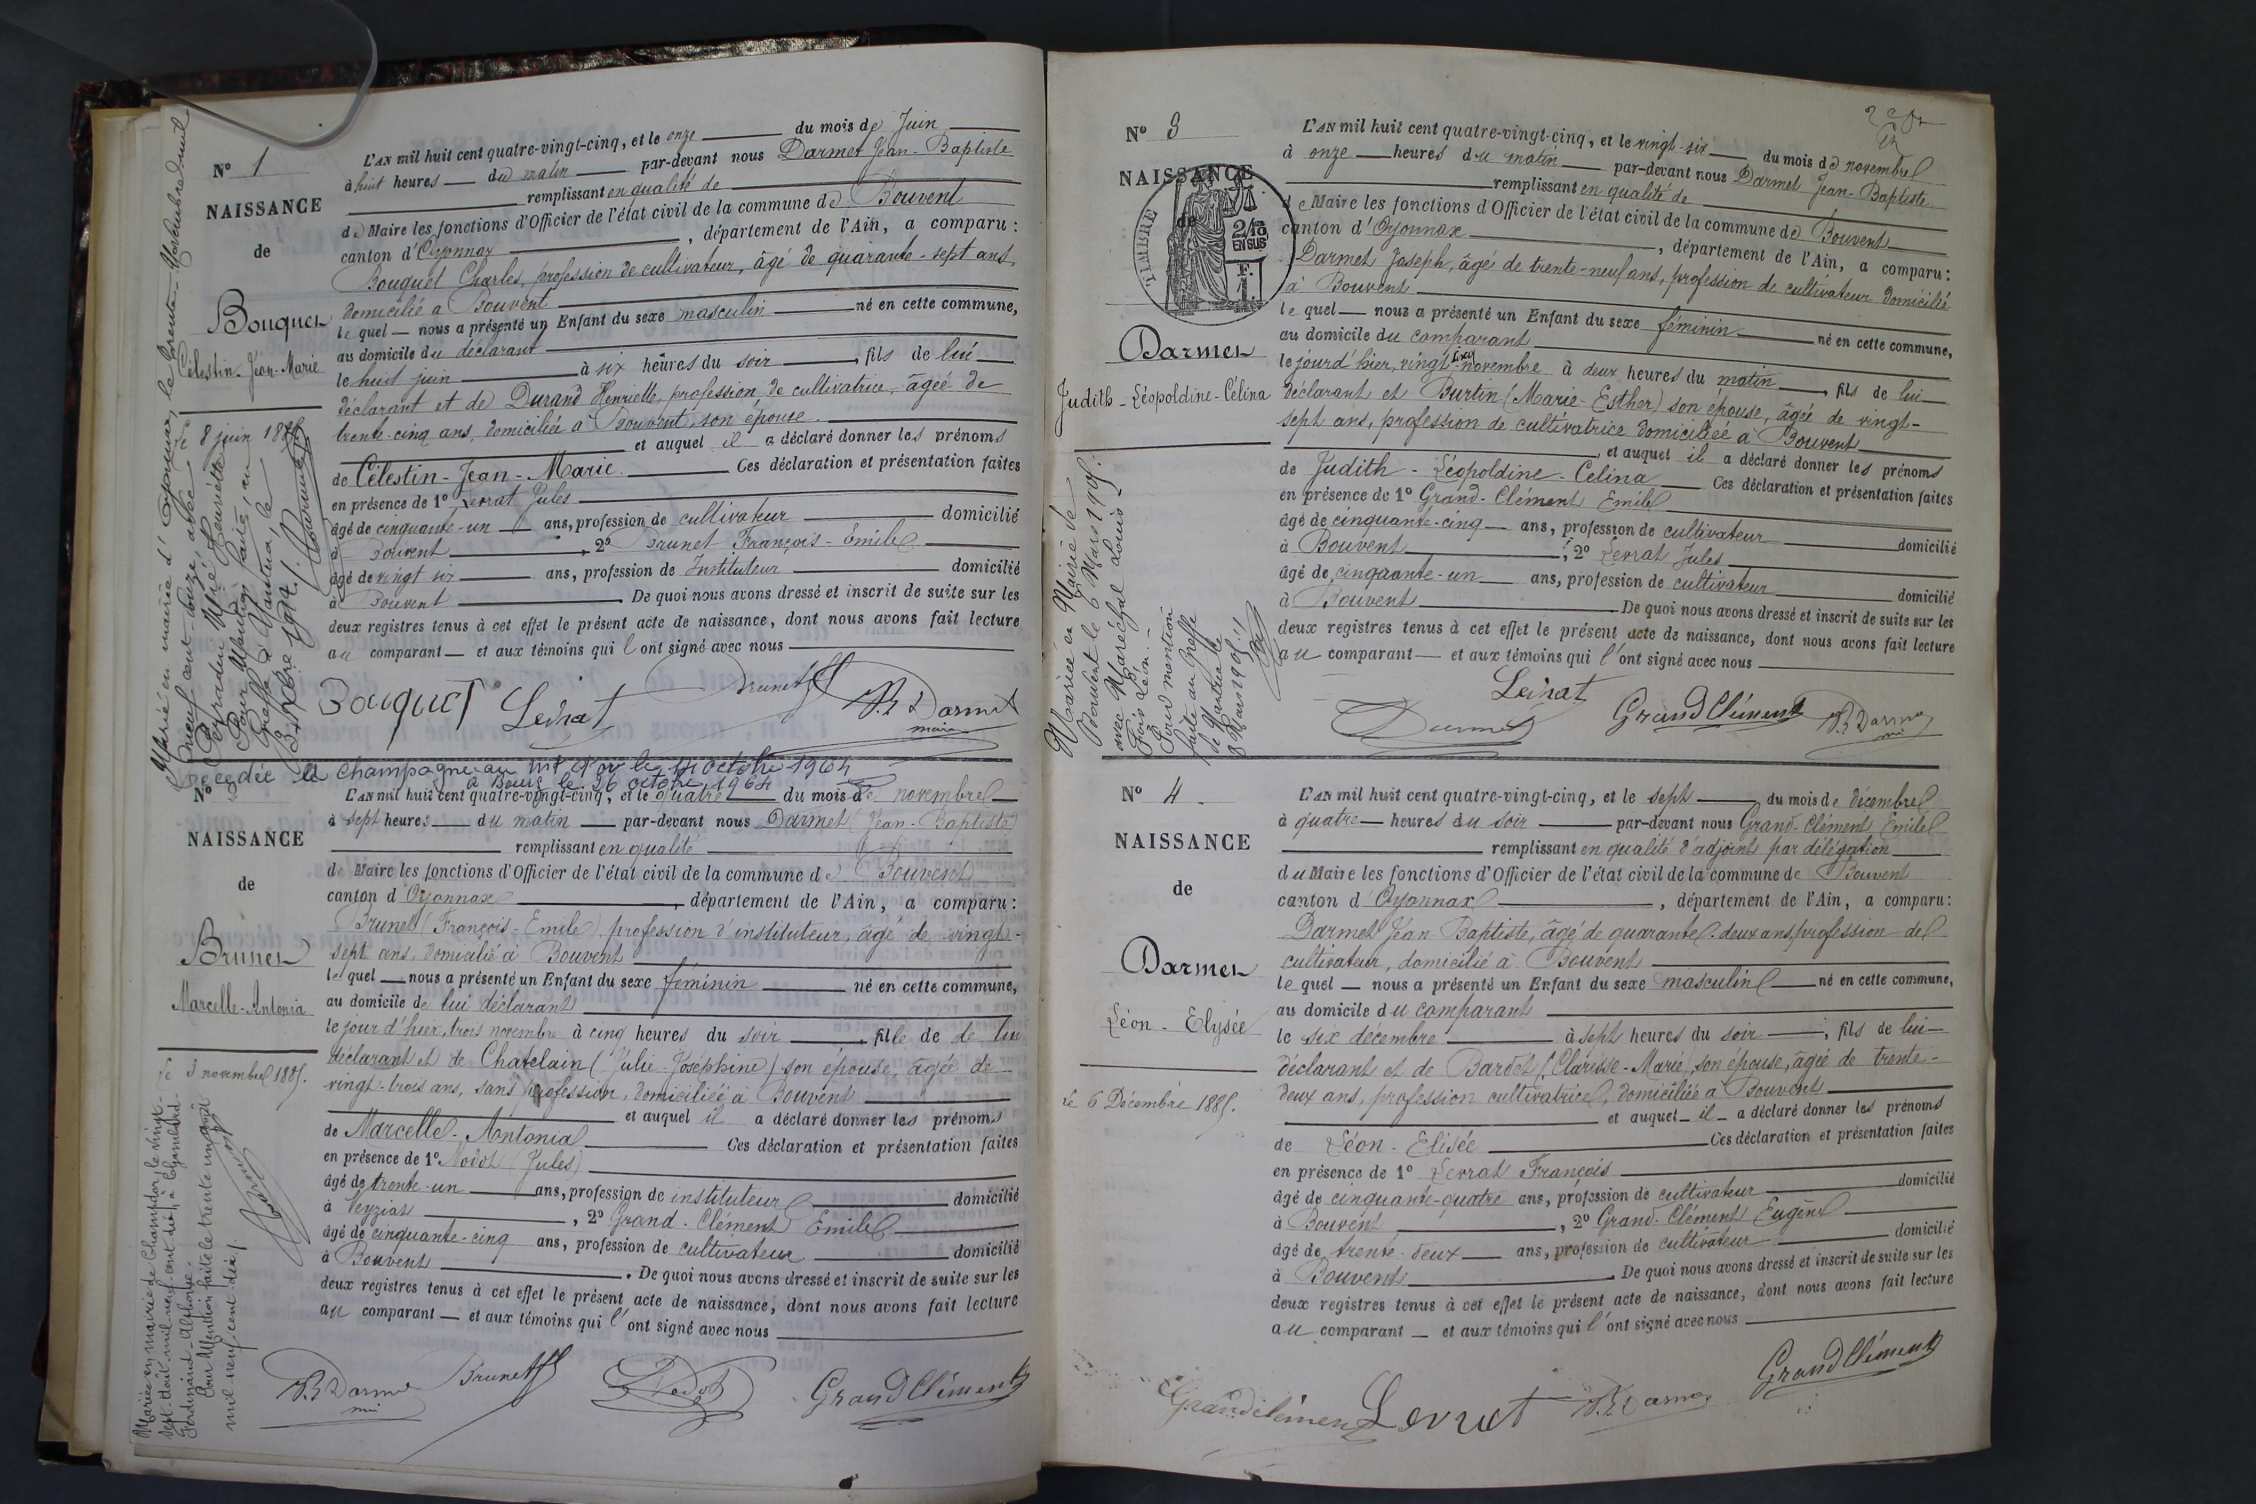 N° 1
NAISSANCE
de
Bouquet
Célestin-Jean-Marie
8 juin 1885
L'AN mil huit cent quatre-vingt-cinq, et le onze du mois de Juin
à huit heures du matin par-devant nous Darmet Jean-Baptiste
remplissant en qualité de
de Maire les fonctions d'Officier de l'état civil de la commune de Bouvent
canton d'Oyonnax, département de l'Ain, a comparu :
Bouquet Charles, profession de cultivateur, âgé de quarante-sept ans,
domicilié à Bouvent
le quel nous a présenté un Enfant du sexe masculin né en cette commune,
au domicile du déclarant
le huit juin à six heures du soir, fils de lui
déclarant et de Durand Henriette, profession de cultivatrice, âgée de
trente-cinq ans, domiciliée à Bouvent, son épouse
et auquel il a déclaré donner les prénoms
de Célestin-Jean-Marie. Ces déclaration et présentation faites
en présence de 1° Levrat Jules
âgé de cinquante-un ans, profession de cultivateur domicilié
à Bouvent, 2° Brunet François-Emile
âgé de vingt six ans, profession de Instituteur domicilié
à Bouvent. De quoi nous avons dressé et inscrit de suite sur les
deux registres tenus à cet effet le présent acte de naissance, dont nous avons fait lecture
au comparant et aux témoins qui l'ont signé avec nous
Bouquet Levrat Brunet JB Darmet
maire
Marié en mairie d'Oyonnax le trente Novembre mil
neuf cent treize, avec
Décédée à Champagne au Mt d'or le 14 octobre 1964
à Bourg le 26 octobre 1964
N° 2
NAISSANCE
de
Brunet
Marcelle-Antonia
le 3 novembre 1885.
L'AN mil huit cent quatre-vingt-cinq, et le quatre du mois de novembre
à sept heures du matin par-devant nous Darmet (Jean-Baptiste)
remplissant en qualité
de Maire les fonctions d'Officier de l'état civil de la commune de Bouvent
canton d'Oyonnax, département de l'Ain, a comparu :
Brunet (François-Emile) profession d'instituteur, âgé de vingt-
sept ans, domicilié à Bouvent
le quel nous a présenté un Enfant du sexe féminin né en cette commune,
au domicile de lui déclarant
le jour d'hier, trois novembre à cinq heures du soir, fille de de lui
déclarant et de Chatelain (Julie-Joséphine) son épouse, âgée de
vingt-trois ans, sans profession, domiciliée à Bouvent
et auquel il a déclaré donner les prénoms
de Marcelle-Antonia Ces déclaration et présentation faites
en présence de 1° Nodot (Jules)
âgé de trente-un ans, profession de instituteur domicilié
à Veyziat, 2° Grand-Clément Emile
âgé de cinquante-cinq ans, profession de cultivateur domicilié
à Bouvent. De quoi nous avons dressé et inscrit de suite sur les
deux registres tenus à cet effet le présent acte de naissance, dont nous avons fait lecture
au comparant et aux témoins qui l'ont signé avec nous
JB Darmet Brunet Nodot Grand Clément
Mariée en mairie de Champdor, le vingt-
sept août mil neuf cent dix, à
Ferdinand-Alphonse.
Pour Mention faite le trente un août
mil neuf cent dix
N° 3
NAISSANCE
de
TIMBRE
2/10
EN SUS
F.
1.
Darmet
Judith-Léopoldine-Célina
L'AN mil huit cent quatre-vingt-cinq, et le vingt-six du mois de novembre
à onze heures du matin par-devant nous Darmet Jean-Baptiste
remplissant en qualité de
de Maire les fonctions d'Officier de l'état civil de la commune de Bouvent
canton d'Oyonnax, département de l'Ain, a comparu :
Darmet Joseph, âgé de trente-neuf ans, profession de cultivateur domicilié
à Bouvent
le quel nous a présenté un Enfant du sexe féminin né en cette commune,
au domicile du comparant
le jour d'hier, vingt-cinq novembre à deux heures du matin, fils de lui
déclarant et Burtin (Marie-Esther) son épouse, âgée de vingt-
sept ans, profession de cultivatrice domiciliée à Bouvent
et auquel il a déclaré donner les prénoms
de Judith-Léopoldine-Celina Ces déclaration et présentation faites
en présence de 1° Grand-Clément Emile
âgé de cinquante-cinq ans, profession de cultivateur domicilié
à Bouvent, 2° Levrat Jules
âgé de cinquante-un ans, profession de cultivateur domicilié
à Bouvent. De quoi nous avons dressé et inscrit de suite sur les
deux registres tenus à cet effet le présent acte de naissance, dont nous avons fait lecture
au comparant et aux témoins qui l'ont signé avec nous
Levrat
Darmet Grand Clément JB Darmet
Mariée en Mairie de
Bouvent le 6 Mars 1905.
avec Maréchal Louis
Pour mention
faite au Greffe
de Nantua le
8 Mars 1905
N° 4
NAISSANCE
de
Darmet
Léon-Elysée
le 6 Décembre 1885.
L'AN mil huit cent quatre-vingt-cinq, et le sept du mois de décembre
à quatre heures du soir par-devant nous Grand-Clément Emile
remplissant en qualité d'adjoint par délégation
du Maire les fonctions d'Officier de l'état civil de la commune de Bouvent
canton d'Oyonnax, département de l'Ain, a comparu :
Darmet Jean-Baptiste, âgé de quarante-deux ans, profession de
cultivateur, domicilié à Bouvent
le quel nous a présenté un Enfant du sexe masculin né en cette commune,
au domicile du comparant
le six décembre à sept heures du soir, fils de lui
déclarant et de Bardet (Clarisse-Marie) son épouse, âgée de trente-
deux ans, profession cultivatrice, domiciliée à Bouvent
et auquel il a déclaré donner les prénoms
de Léon-Elisée Ces déclaration et présentation faites
en présence de 1° Levrat François
âgé de cinquante-quatre ans, profession de cultivateur domicilié
à Bouvent, 2° Grand-Clément Eugène
âgé de trente-deux ans, profession de cultivateur domicilié
à Bouvent. De quoi nous avons dressé et inscrit de suite sur les
deux registres tenus à cet effet le présent acte de naissance, dont nous avons fait lecture
au comparant et aux témoins qui l'ont signé avec nous
Grand Clément
Grandclément Levrat JB Darmet